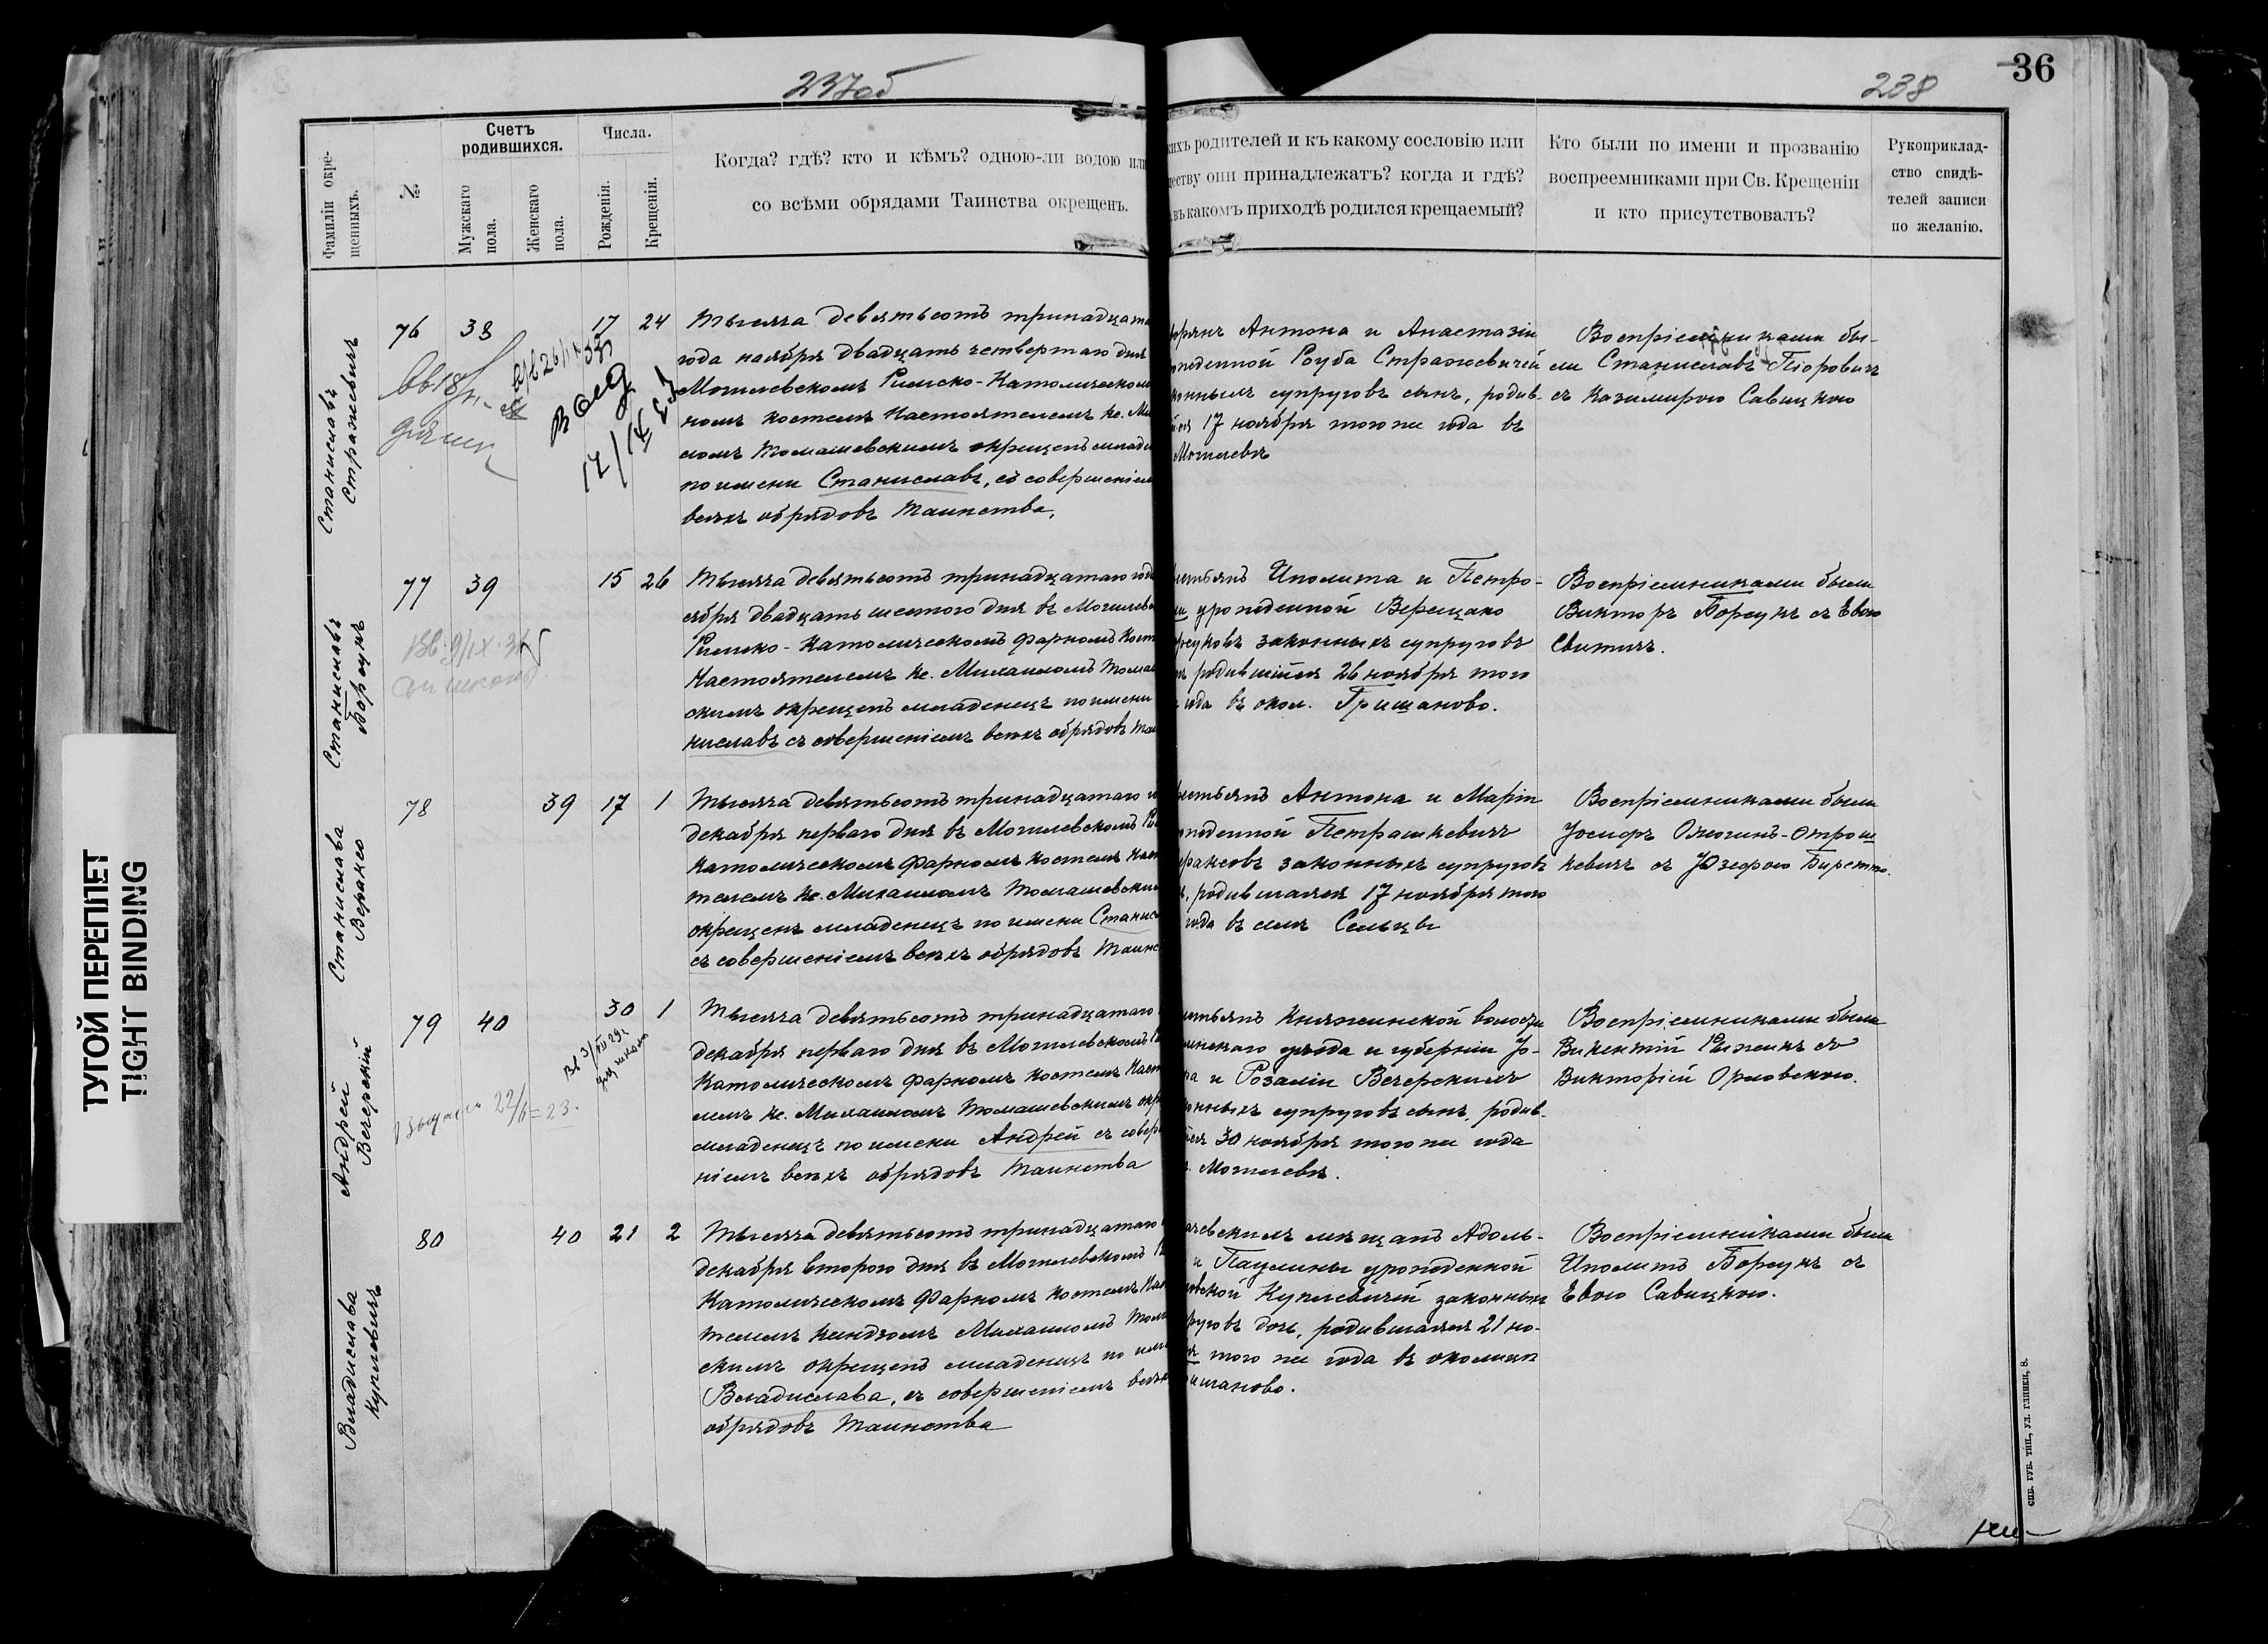 237об
238
36
ТУГОЙ ПЕРЕПЛЕТ
TIGHT BINDING
Фамиліи окре-
щенныхъ.
№
Счетъ
родившихся.
Мужскаго
пола.
Женскаго
пола.
Числа.
Рожденія.
Крещенія.
Когда? гдѣ? кто и кѣмъ? одною-ли водою или
со всѣми обрядами Таинства окрещенъ.
кихъ родителей и къ какому сословію или
ществу они принадлежатъ? когда и гдѣ?
въ какомъ приходѣ родился крещаемый?
Кто были по имени и прозванію
воспреемниками при Св. Крещеніи
и кто присутствовалъ?
Рукоприклад-
ство свидѣ-
телей записи
по желанію.
Станиславъ
Стражевичъ
76 38 17 24
Тысяча девятьсотъ тринадцата
года ноября двадцать четвертаго дня
Могилевскомъ Римско-Католическом
номъ костелѣ Настоятелемъ Кс. Ми
ломъ Томашевскимъ окрещенъ млад
по имени Станиславъ, съ совершеніем
всѣхъ обрядовъ Таинства.
орянъ Антона и Анастазіи
рожденной Роуба Стражевичей
онныхъ супруговъ сынъ, родив-
ся 17 ноября того же года въ
Могилевѣ
Воспріемниками бы-
ли Станиславъ Піоровичъ
съ Казимирою Савицкою
Станиславъ
Борсукъ
77 39 15 26
Вв. 9/IX. 31
Тысяча девятьсотъ тринадцатаго год
ября двадцать шестого дня въ Могилев
Римско-Католическомъ фарномъ Кост
Настоятелемъ Кс. Михаиломъ Томаш
скимъ окрещенъ младенецъ по имени
ниславъ съ совершеніемъ всѣхъ обрядовъ Таи
естьянъ Иполита и Петро-
ли урожденной Верещако
рсуковъ законныхъ супруговъ
ъ родившійся 26 ноября того
года въ окол. Гришаново.
Воспріемниками были
Викторъ Борсукъ съ Евою
Свитичъ.
Станислава
Вераксо
78 39 17 1
Тысяча девятьсотъ тринадцатаго г
декабря перваго дня въ Могилевскомъ Ри
Католическомъ фарномъ костелѣ Наст
телемъ Кс. Михаиломъ Томашевским
окрещенъ младенецъ по имени Станис
съ совершеніемъ всѣхъ обрядовъ Таинс
естьянъ Антона и Маріи
рожденной Петрашкевичъ
ераксовъ законныхъ супруговъ
ь, родившаяся 17 ноября того
года въ селѣ Сельцы
Воспріемниками были
Іосифъ Ожогинъ-Отрош
кевичъ съ Юзефою Биретто.
Андрей
Вечерскій
79 40 30 1
Выдана 22/6 = 23.
Вв 3/VII 29г.
Тысяча девятьсотъ тринадцатаго
декабря перваго дня въ Могилевскомъ Р
Католическомъ фарномъ костелѣ Наст
лемъ Кс. Михаиломъ Томашевскимъ окр
младенецъ по имени Андрей съ совер
ніемъ всѣхъ обрядовъ Таинства
естьянъ Княжинской волости
инскаго уѣзда и губерніи Іо-
фа и Розаліи Вечерскихъ
онныхъ супруговъ сынъ, родив-
ійся 30 ноября того же года
г. Могилевѣ.
Воспріемниками были
Викентій Рижикъ съ
Викторіей Орловскою.
Владислава
Купчевичъ
80 40 21 2
Тысяча девятьсотъ тринадцатаго
декабря второго дня въ Могилевскомъ Ри
Католическомъ Фарномъ костелѣ Нас
телемъ ксендзомъ Михаиломъ Тома
скимъ окрещенъ младенецъ по име
Владислава, съ совершеніемъ всѣх
обрядовъ Таинства
левскихъ мѣщанъ Адоль-
и Паулины урожденной
овской Купчевичей законных
руговъ дочь, родившаяся 21 но-
я того же года въ околицѣ
ишаново.
Воспріемниками были
Иполитъ Борсукъ съ
Евою Савицкою.
СПБ. ГУБ. ТИП., УЛ. ГЛИНКИ, 8.